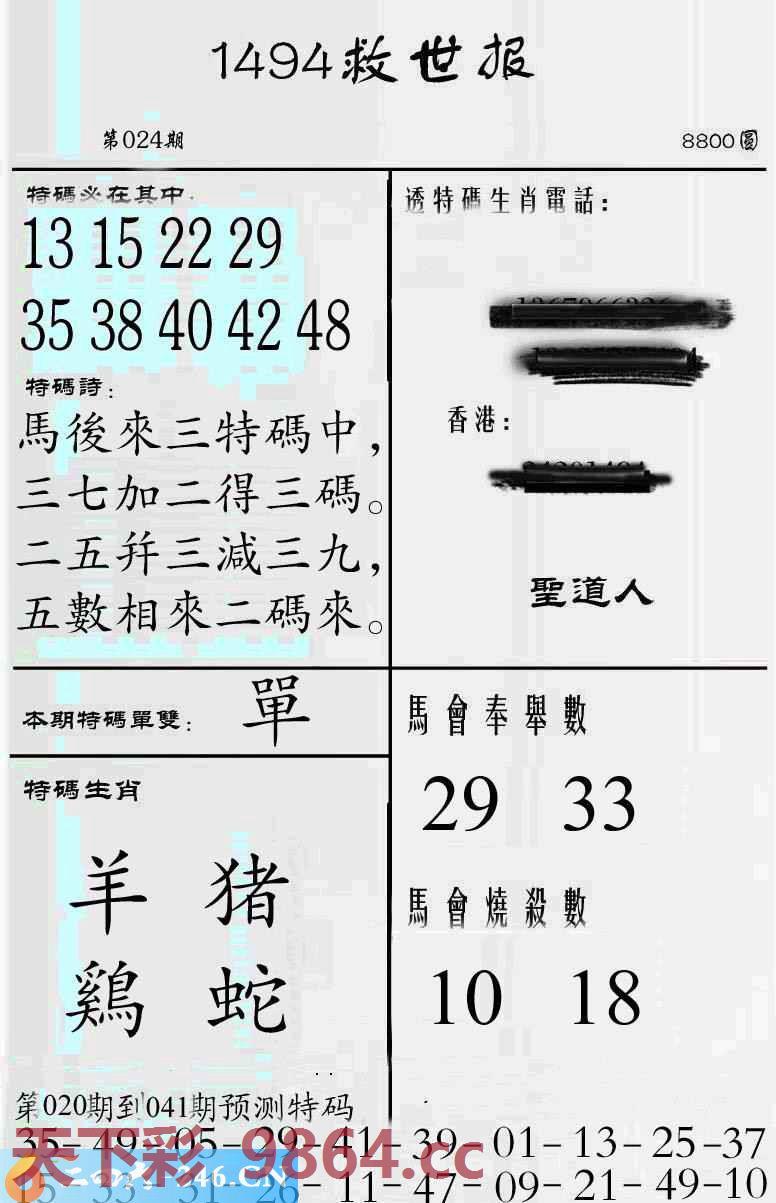 1494救世报
第024期
8800圓
特碼必在其中:
13 15 22 29
35 38 40 42 48
特碼詩:
馬後來三特碼中,
三七加二得三碼。
二五并三減三九,
五數相來二碼來。
透特碼生肖電話:
香港:
聖道人
本期特碼單雙: 單
特碼生肖
羊 猪
鷄 蛇
馬會奉舉數
29 33
馬會燒殺數
10 18
第020期到041期预测特码
35-49-05-29-41-39-01-13-25-37
11-47-09-21-49-10
天下彩 9864.cc
246.CN